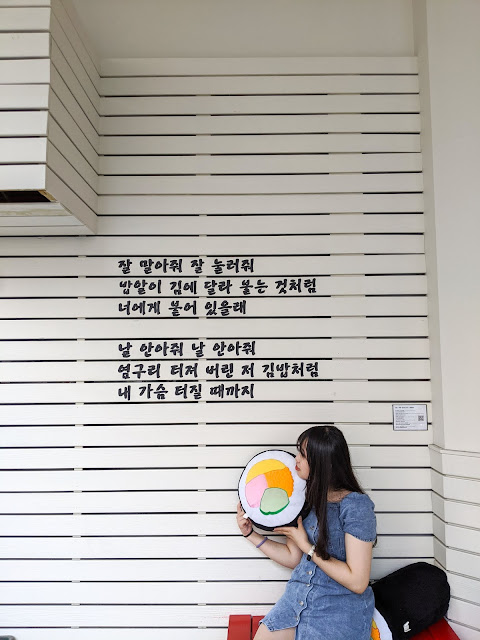 잘 말아줘 잘 눌러줘
밥알이 김에 달라 붙는 것처럼
너에게 붙어 있을래
날 안아줘 날 안아줘
옆구리 터져 버린 저 김밥처럼
내 가슴 터질 때까지